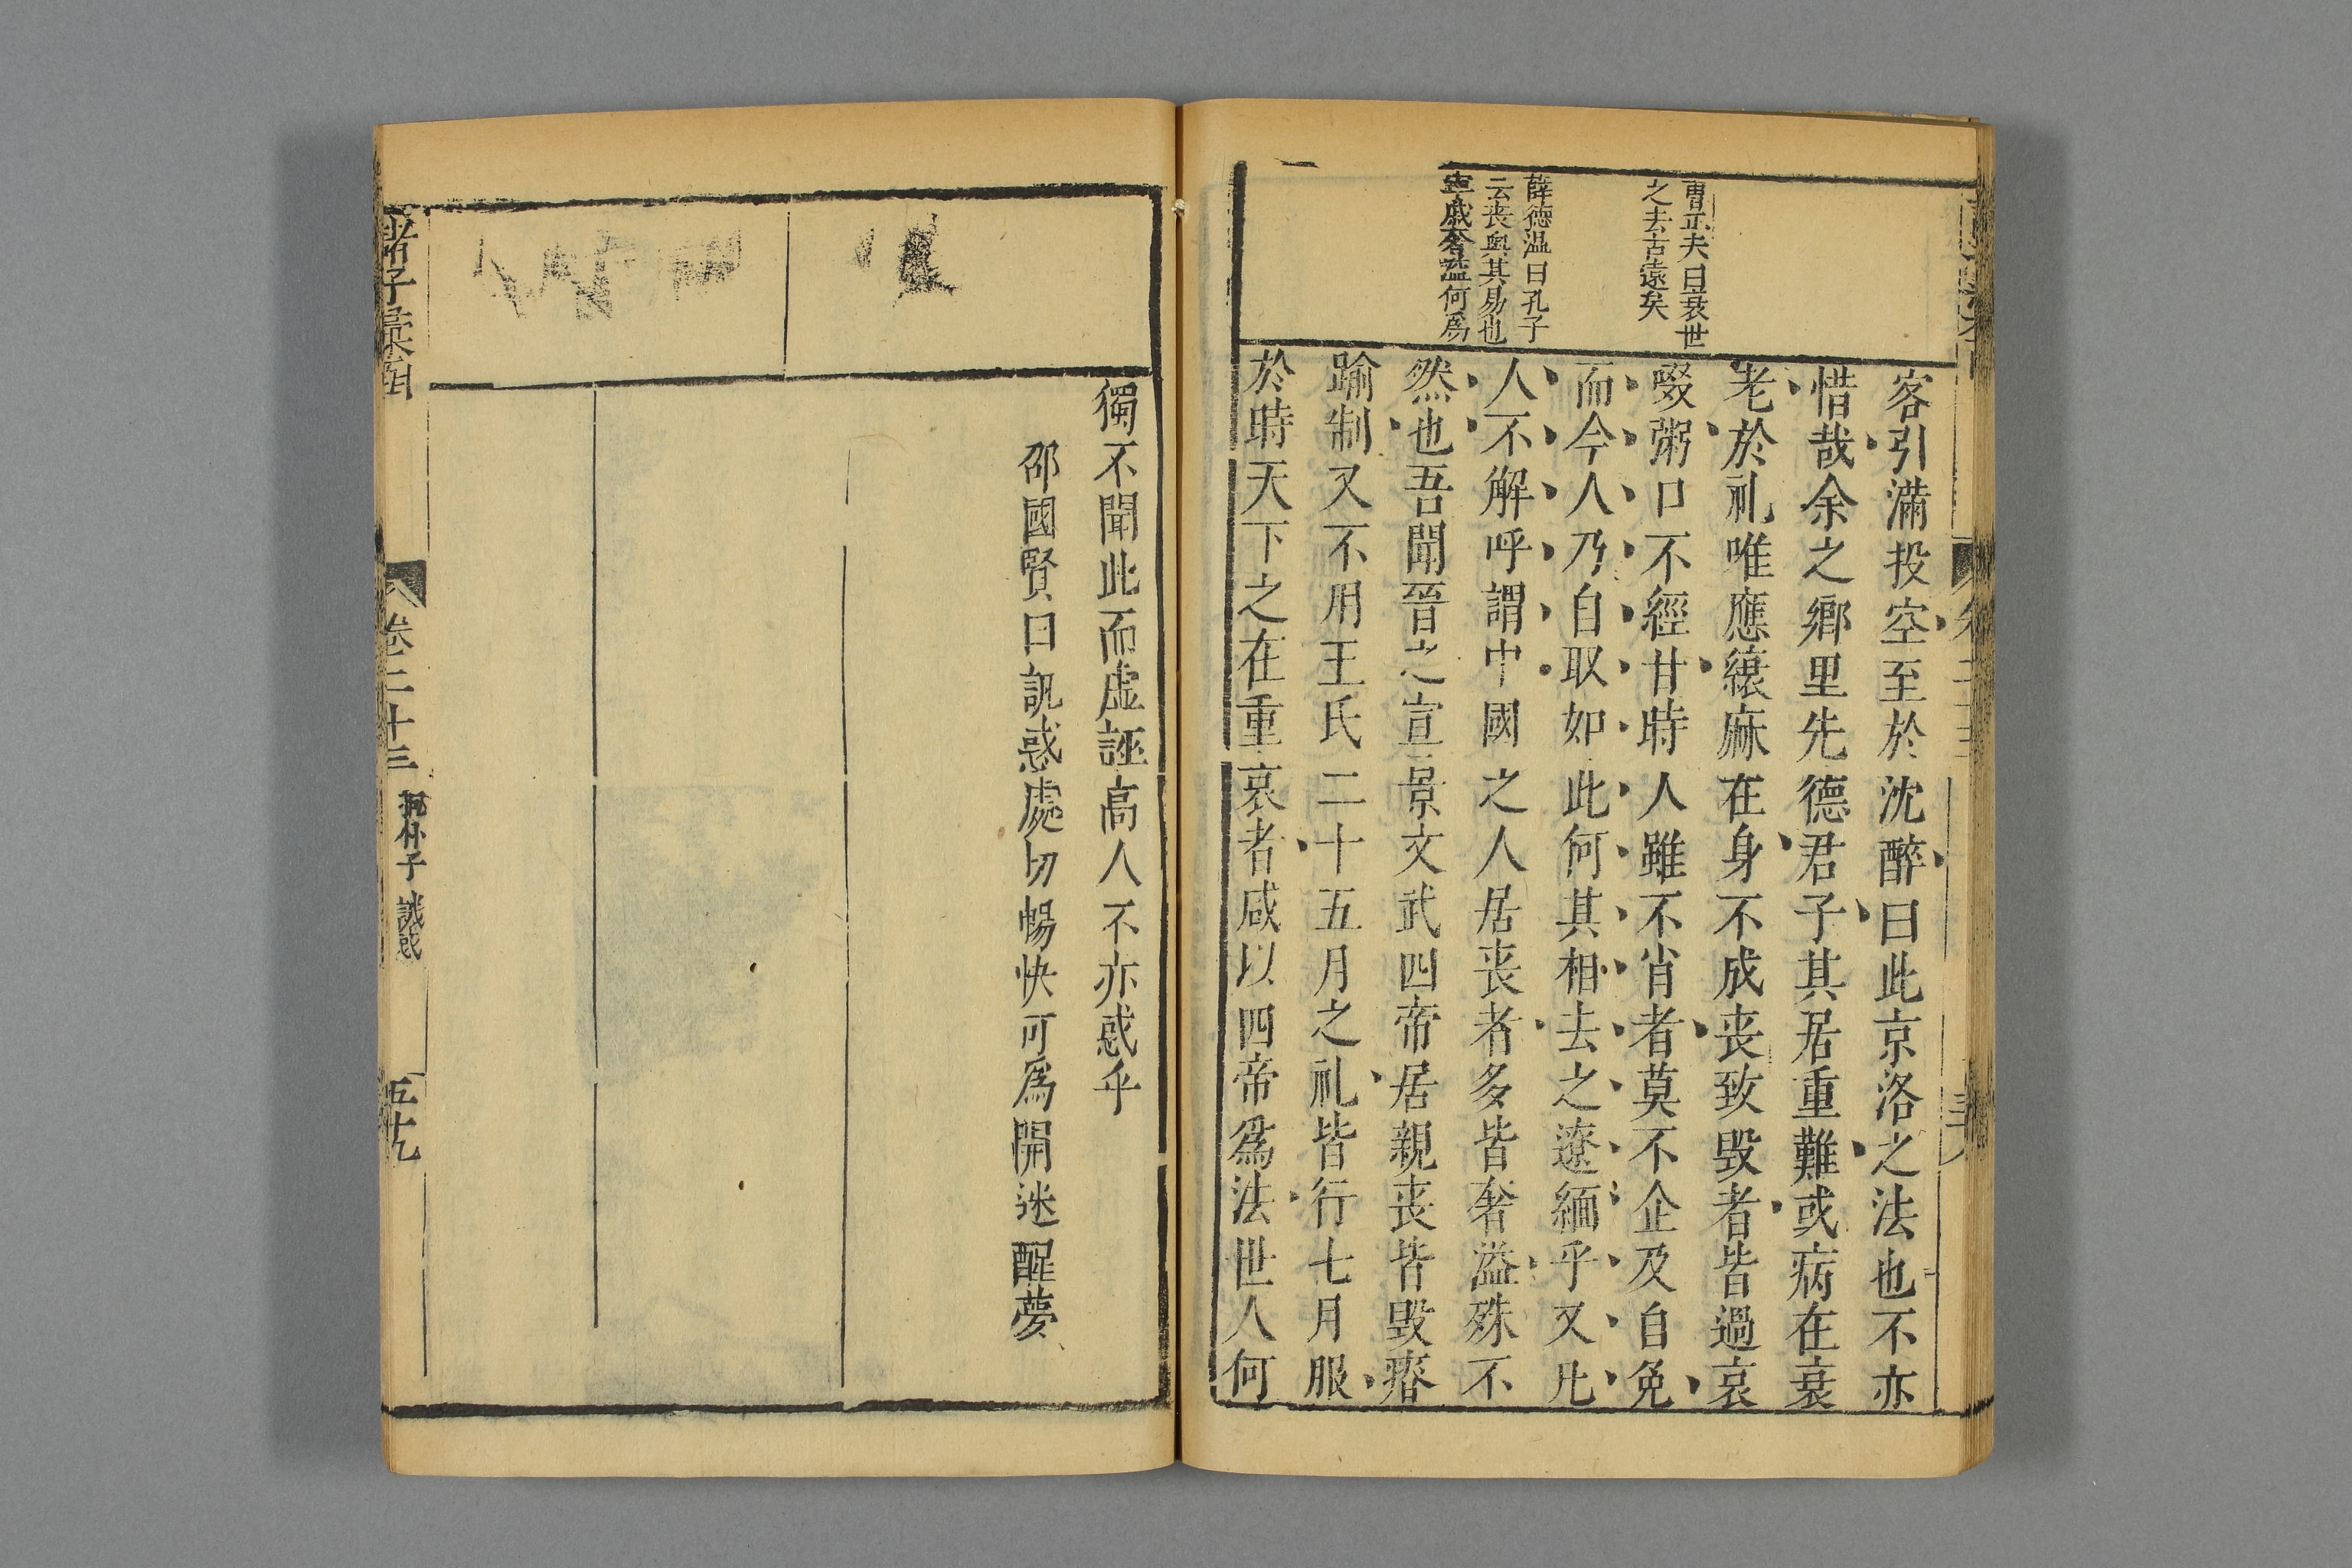 曹正夫曰衰世
之去古遠矣
薛德溫曰孔子
云丧與其易也
寧戚奢溢何為
客引滿投空至於沈醉曰此京洛之法也不亦
惜哉余之鄉里先德君子其居重難或病在衰
老於礼唯應縗麻在身不成丧致毀者皆過哀
啜粥口不經甘時人雖不肖者莫不企及自免
而今人乃自取如此何其相去之遼緬乎又凡
人不解呼謂中國之人居丧者多皆奢溢殊不
然也吾聞晉之宣景文武四帝居親丧皆毀瘠
踰制又不用王氏二十五月之礼皆行七月服
於時天下之在重哀者咸以四帝爲法世人何
獨不聞此而虛誣高人不亦惑乎
邵國賢曰訊惑處切暢快可爲開迷醒夢
諸子彙函
卷二十三
抱朴子
譏惑
五十九